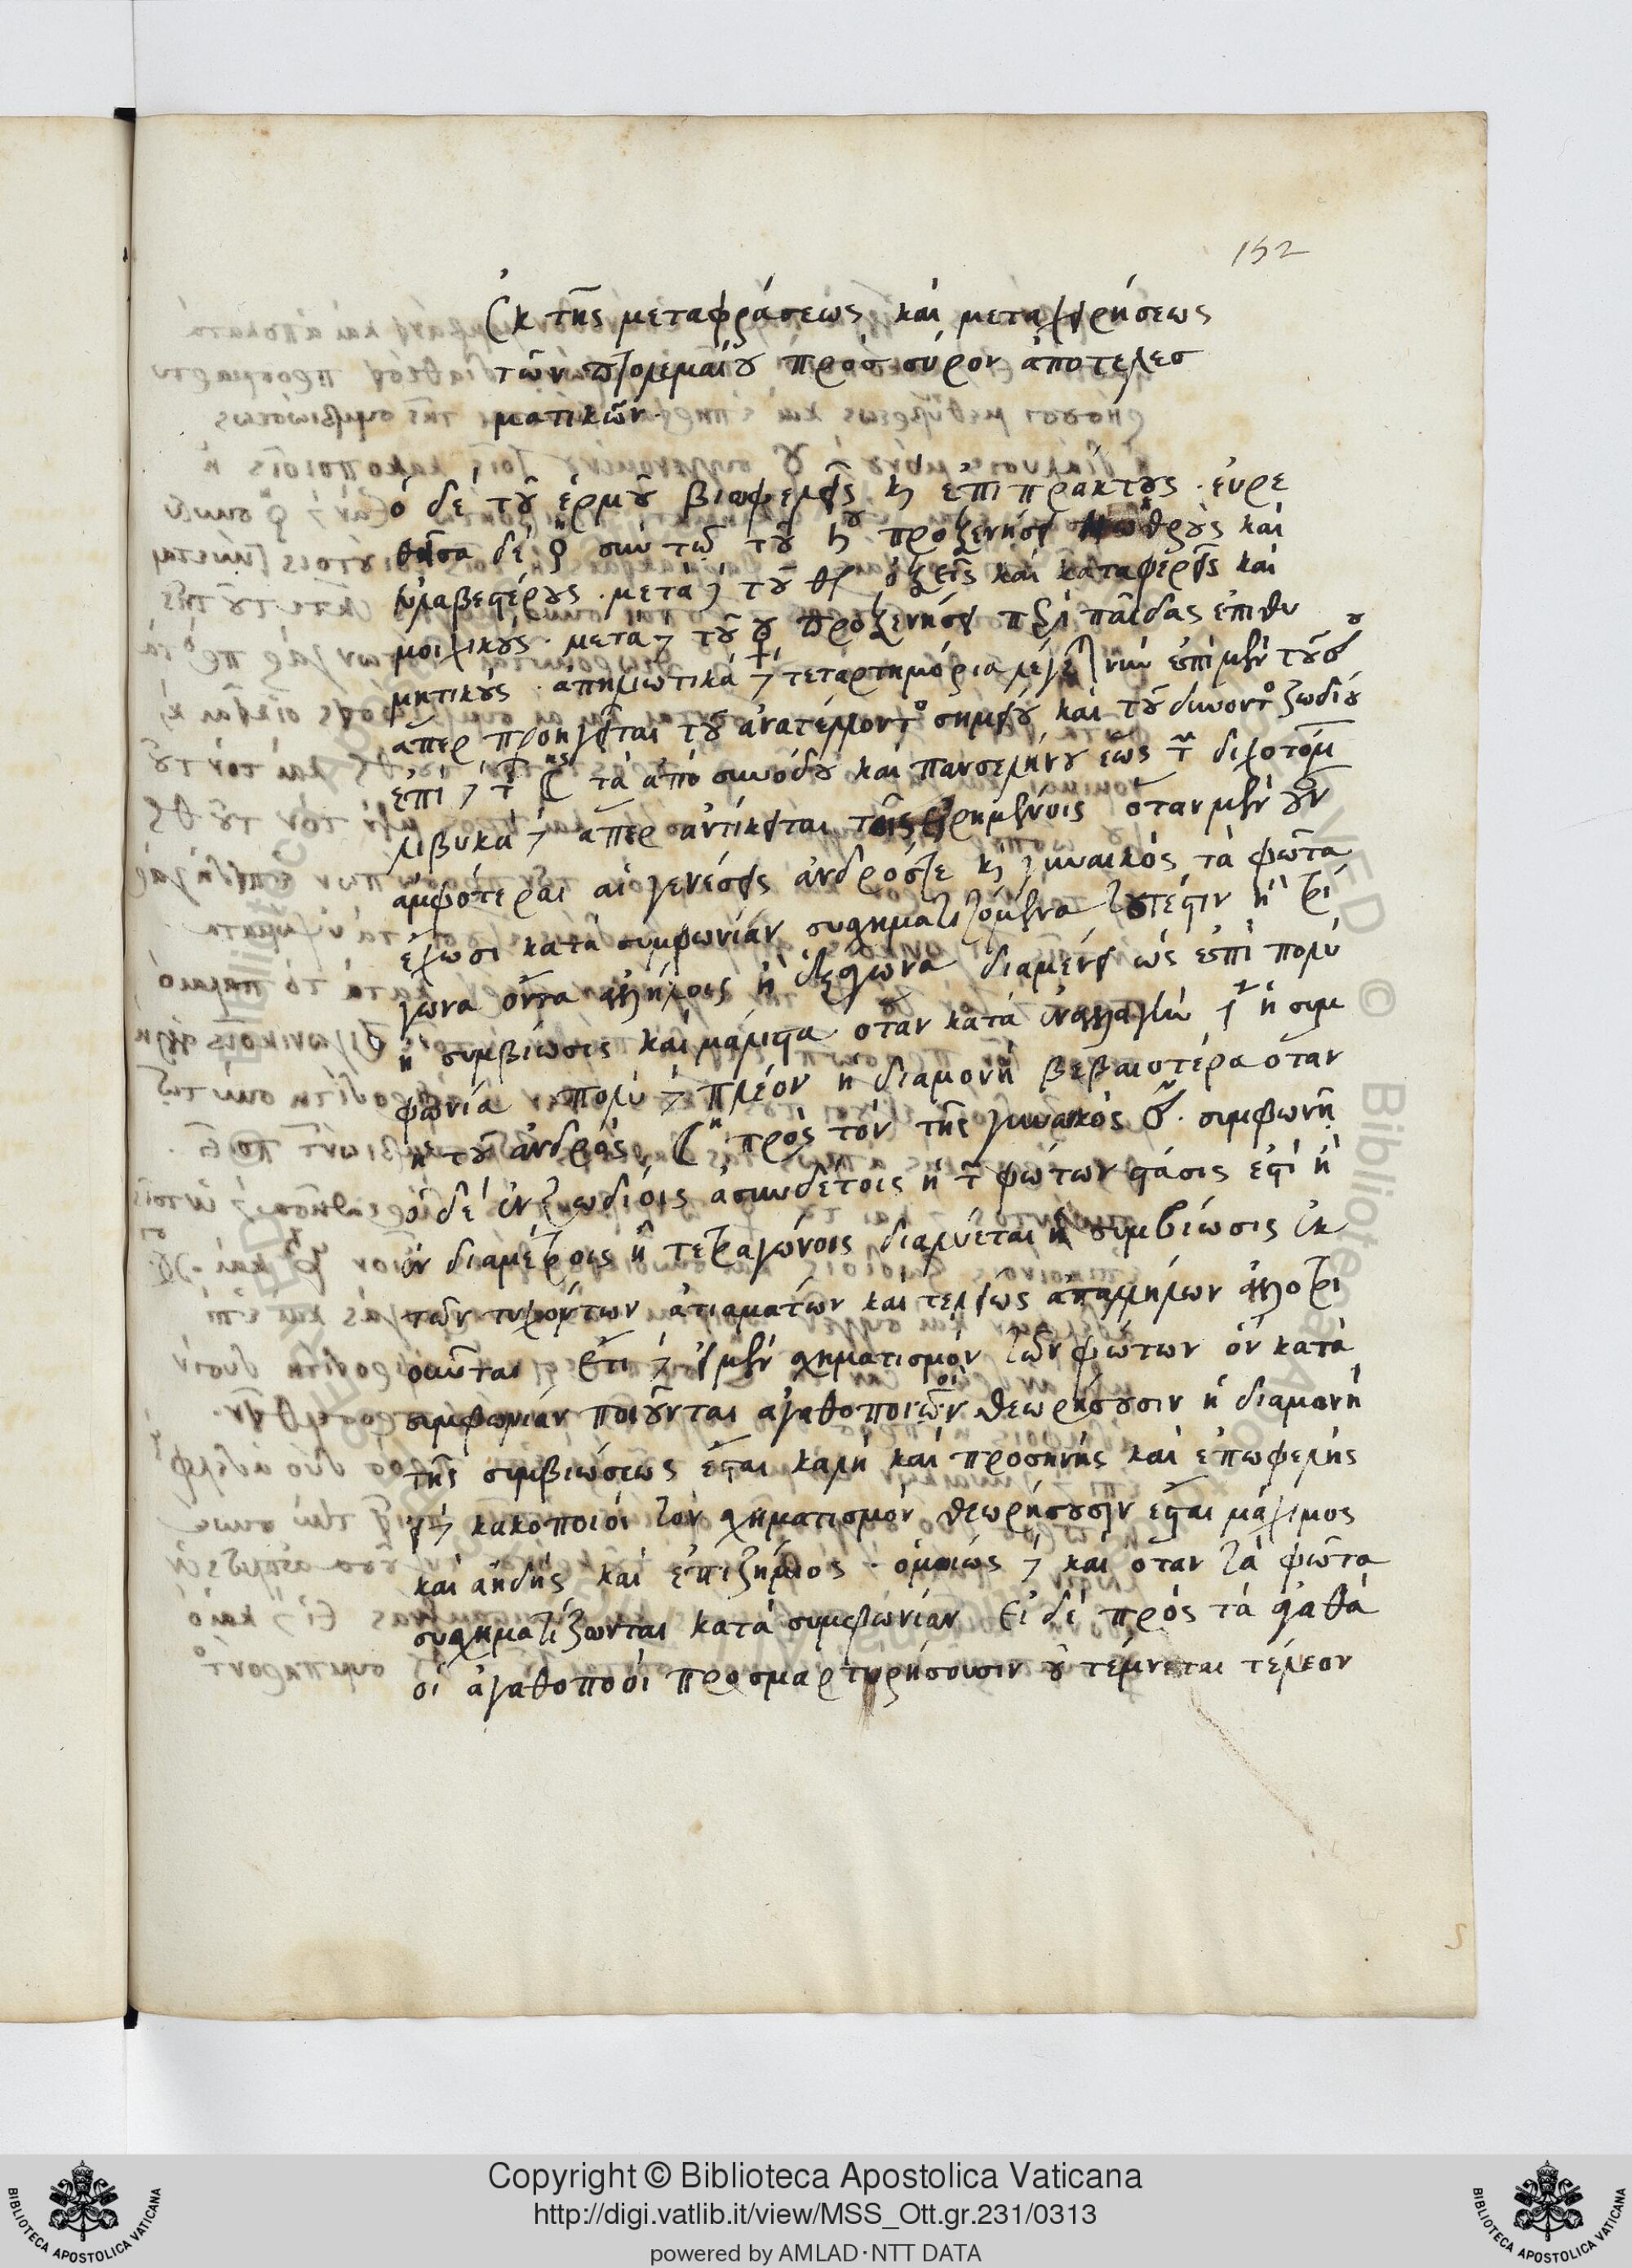 152
ἐκ τῆς μεταφράσεως καὶ μεταχειρήσεως
τῶν πτολεμαίου πρὸς σύρον ἀποτελεσ
ματικῶν.
ὁ δὲ τοῦ ἑρμοῦ βιωφελεῖς κ ἐπιπράκτους. εὑρε
θεῖσα δὲ ♀ σὺν τῶ τοῦ ♄ου προξενήσει νωθροὺς καὶ
εὐλαβεστέρους. μετὰ δὲ τοῦ ὀξεῖς καὶ καταφερεῖς καὶ
μοιχικούς. μετὰ δὲ τοῦ ☿ου προξενήσει περὶ παῖδας ἐπιθυ
μητικούς. ἀπηλιωτικὰ δὲ τεταρτημόρια λέγει νῦν ἐπὶ μὲν τοῦ
ἅπερ προηγεῖται τοῦ ἀνατέλλοντο σημείου καὶ τοῦ δύνοντο ζωδίου
ἐπὶ δὲ τ ☾ης τὰ ἀπὸ συνόδου καὶ πανσελήνου ἕως τ διχοτόμ
λιβυκὰ δὲ ἅπερ ἀντίκειται τοῖς εἰρημένοις ὅταν μὲν οὖν
ἀμφότεραι αἱ γενέσεις ἀνδρός τε κ γυναικὸς τὰ φῶτα
ἔχωσι κατὰ συμφωνίαν συσχηματιζόμενα τουτέστιν ἢ τρί
γωνα ὄντα ἀλλήλοις ἢ ἑξάγωνα διαμένει ὡς ἐπὶ πολὺ
ἡ συμβίωσις καὶ μάλιστα ὅταν κατὰ ἐναλλαγὴν ἡ συμ
φωνία πολὺ δὲ πλέον ἡ διαμονὴ βεβαιοτέρα ὅταν
ἡ τοῦ ἀνδρὸς ☾η πρὸς τὸν τῆς γυναικὸς συμφωνῆ
ὁ δὲ ἐν ζωδίοις ἀσυνδέτοις ἡ τ φώτων στάσις ἐστὶ ἢ
ἐν διαμέτροις ἢ τετραγώνοις διαλύεται ἡ συμβίωσις ἐκ
τῶν τυχόντων ἀτιαμάτων καὶ τελείως ἀπαλλήλων ἀλλοτρι
οῦνται ἔτι δὲ εἰ μὲν σχηματισμὸν τῶν φώτων ὃν κατὰ
συμφωνίαν ποιοῦνται ἀγαθοποιῶν θεωρήσουσιν ἡ διαμονὴ
τῆς συμβιώσεως ἔσται καλὴ καὶ προσηνὴς καὶ ἐπωφελὴς
εἰ δὲ κακοποιοὶ τὸν σχηματισμὸν θεωρήσουσιν ἔσται μάχιμος
καὶ ἀηδὴς καὶ ἐπιζήμιος. ὁμοίως δὲ καὶ ὅταν τὰ φῶτα
συσχηματίζωνται κατὰ συμφωνίαν εἰ δὲ πρὸς τὰ ἀγαθὰ
οἱ ἀγαθοποιοὶ προσμαρτυρήσουσιν οὐ τέμνεται τέλεον
Copyright © Biblioteca Apostolica Vaticana
http://digi.vatlib.it/view/MSS_Ott.gr.231/0313
powered by AMLAD·NTT DATA
BIBLIOTECA APOSTOLICA VATICANA
BIBLIOTECA APOSTOLICA VATICANA